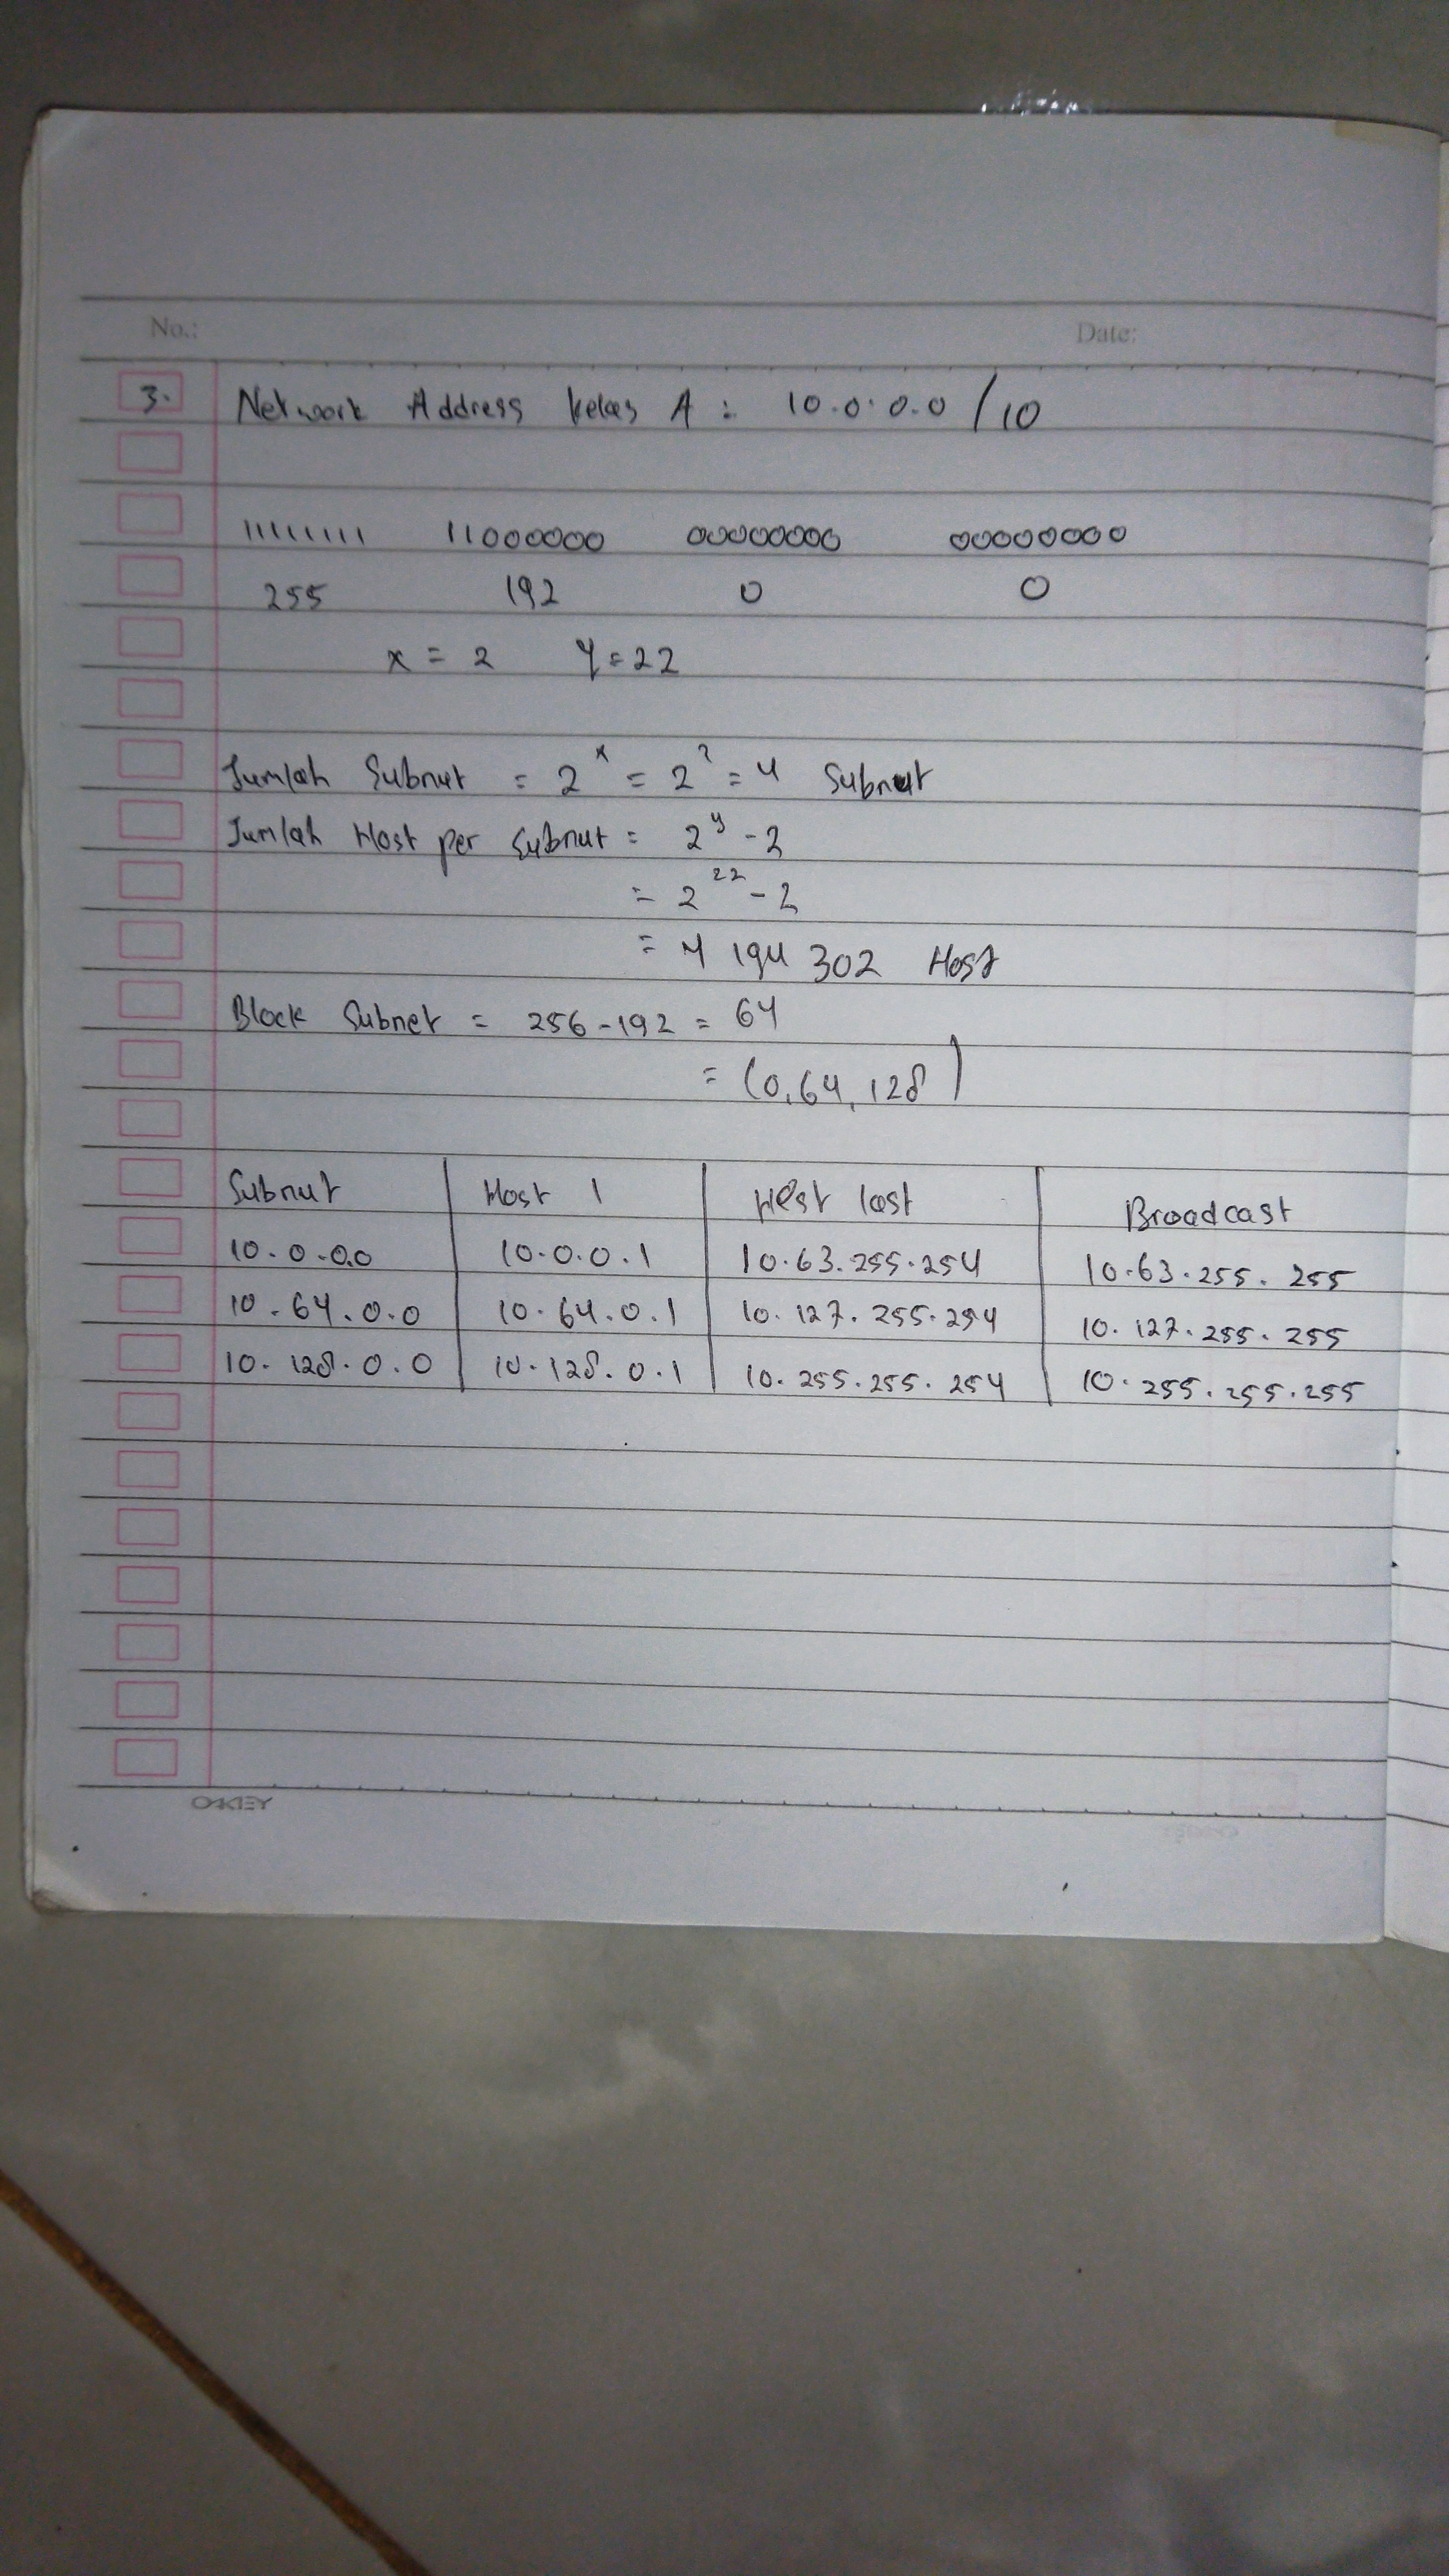 No.: Date:
3. Network Address Kelas A : 10.0.0.0 / 10
11111111 11000000 00000000 00000000
255 192 0 0
x = 2 y = 22
Jumlah Subnut = 2^x = 2^2 = 4 Subnut
Jumlah Host per Subnut = 2^y - 2
= 2^22 - 2
= 4 194 302 Host
Block Subnet = 256 - 192 = 64
= (0, 64, 128)
Subnut Host 1 Host last Broadcast
10.0.0.0 10.0.0.1 10.63.255.254 10.63.255.255
10.64.0.0 10.64.0.1 10.127.255.254 10.127.255.255
10.128.0.0 10.128.0.1 10.255.255.254 10.255.255.255
OAKLEY